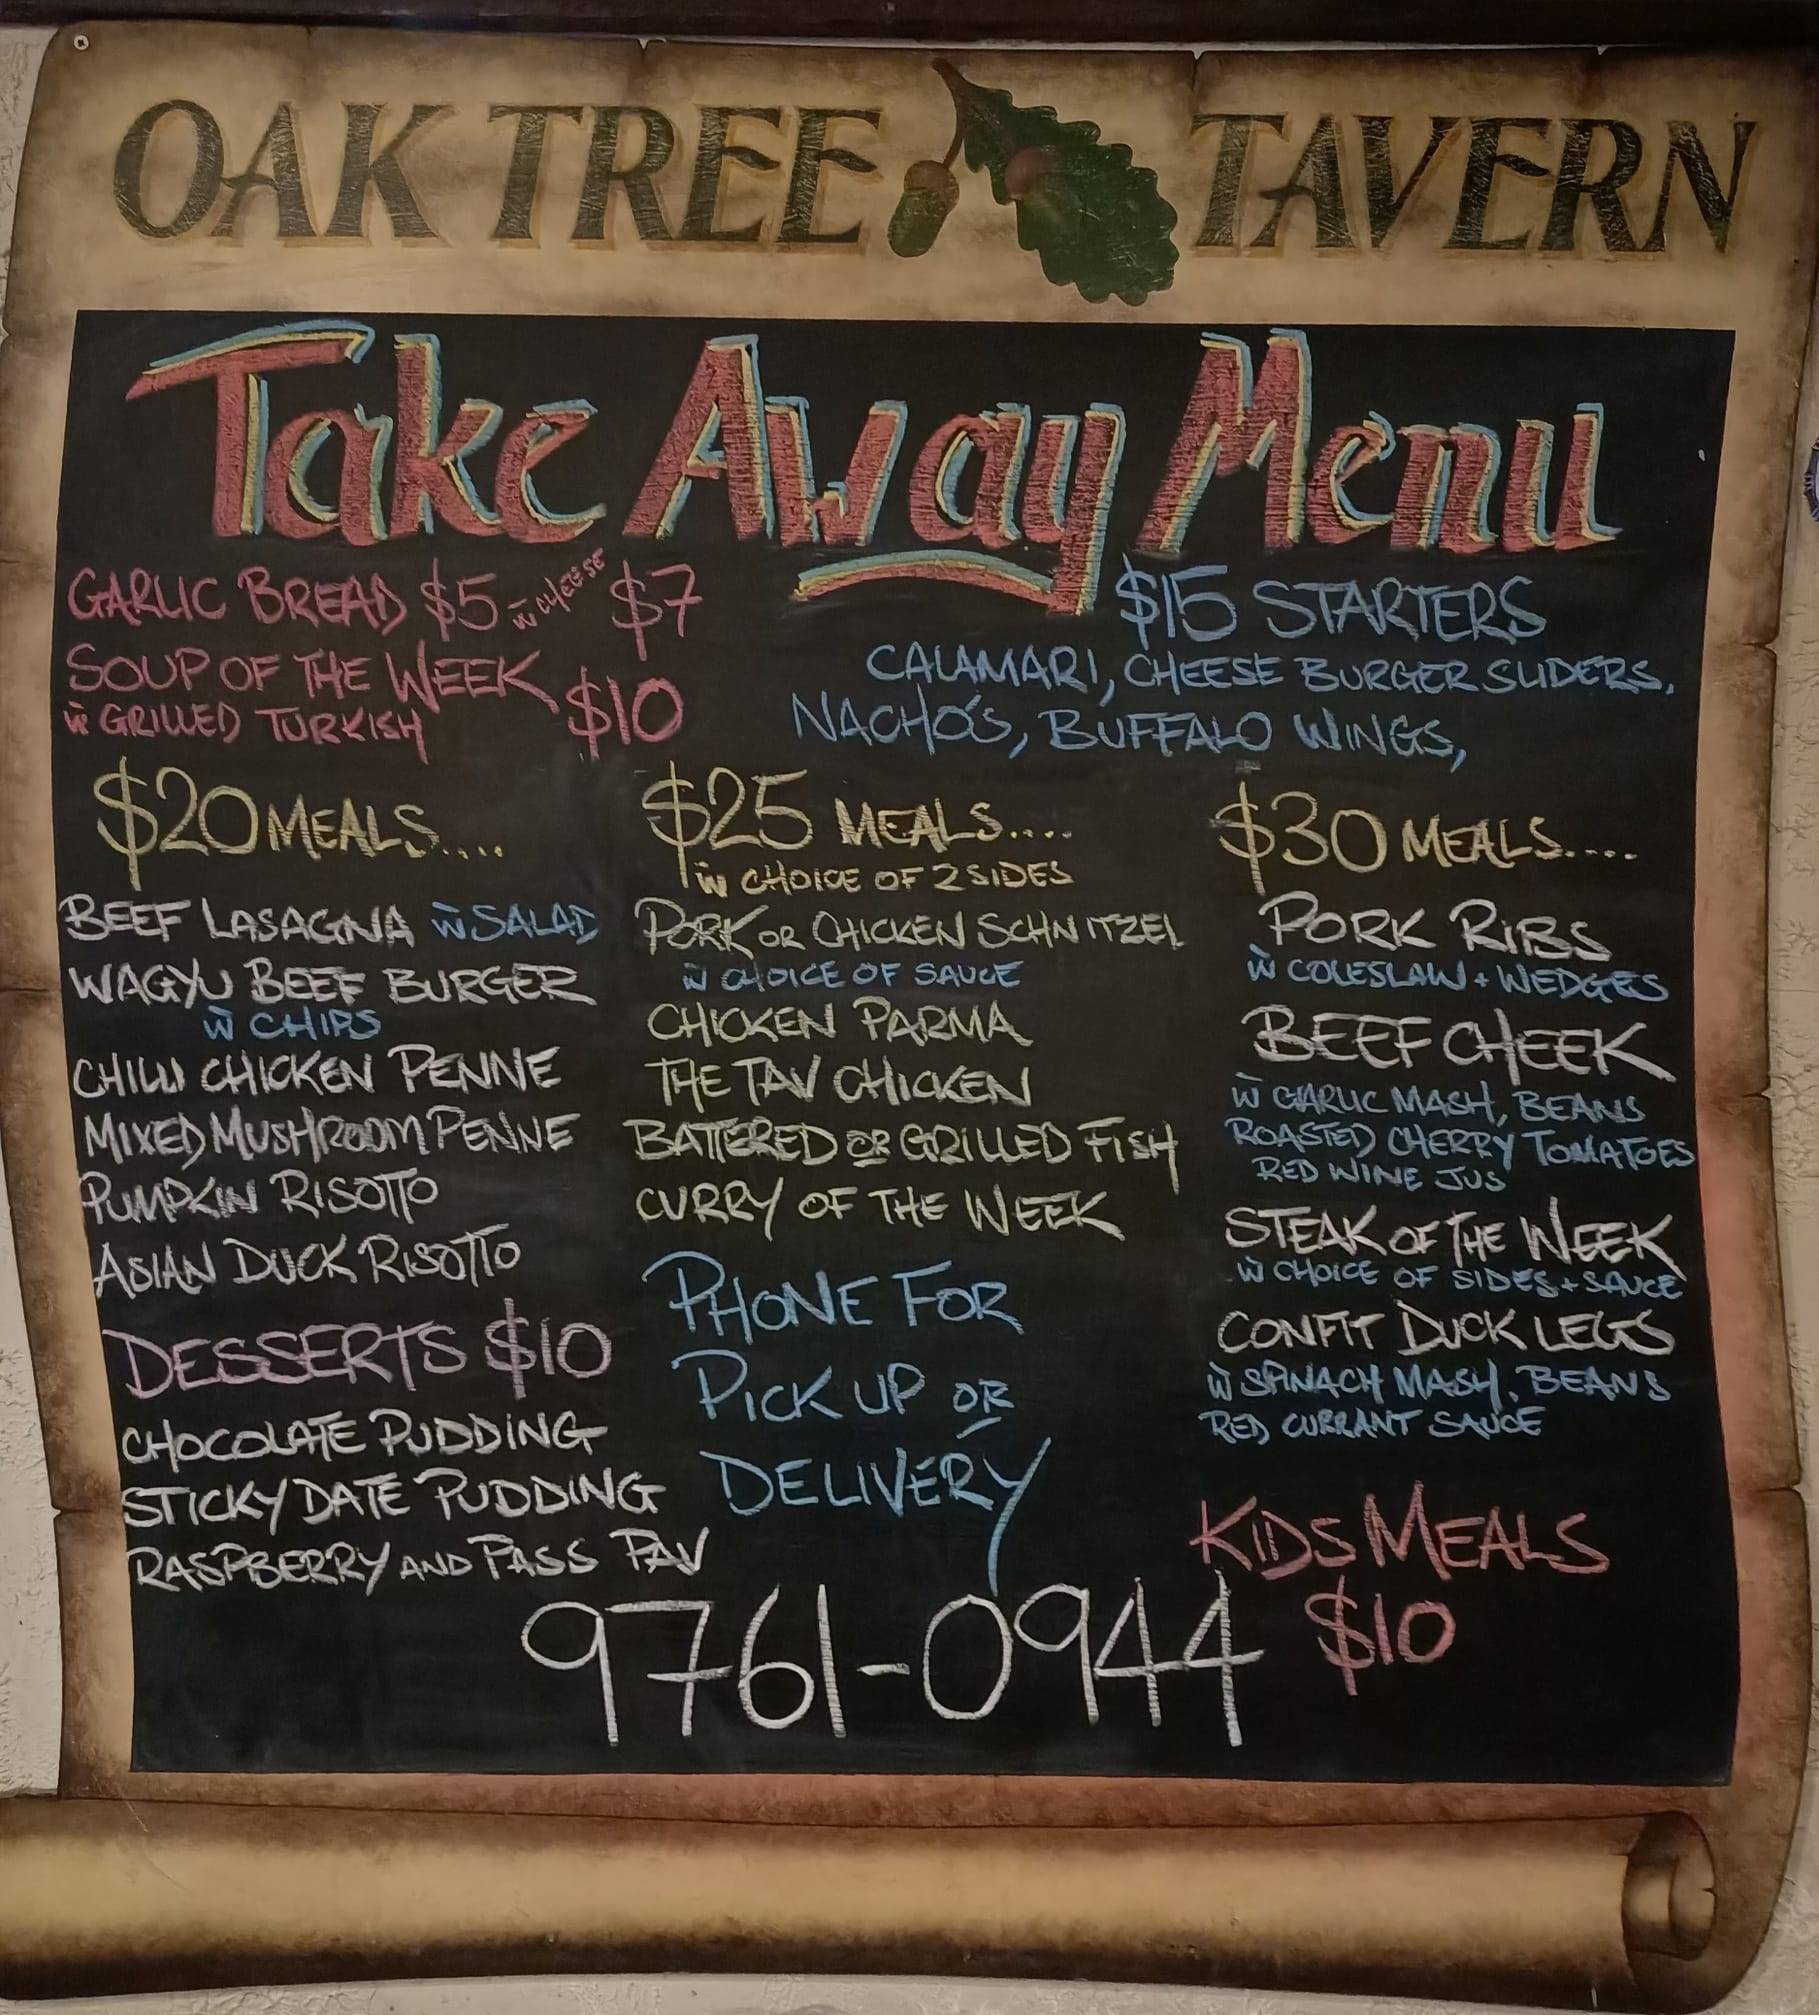 OAK TREE TAVERN
Take Away Menu
GARLIC BREAD $5 w̄ CHEESE $7
SOUP OF THE WEEK
w̄ GRILLED TURKISH $10
$15 STARTERS
CALAMARI, CHEESE BURGER SLIDERS,
NACHO'S, BUFFALO WINGS,
$20 MEALS....
BEEF LASAGNA w̄ SALAD
WAGYU BEEF BURGER
w̄ CHIPS
CHILLI CHICKEN PENNE
MIXED MUSHROOM PENNE
PUMPKIN RISOTTO
ASIAN DUCK RISOTTO
DESSERTS $10
CHOCOLATE PUDDING
STICKY DATE PUDDING
RASPBERRY AND PASS PAV
$25 MEALS....
w̄ CHOICE OF 2 SIDES
PORK OR CHICKEN SCHNITZEL
w̄ CHOICE OF SAUCE
CHICKEN PARMA
THE TAV CHICKEN
BATTERED OR GRILLED FISH
CURRY OF THE WEEK
PHONE FOR
PICK UP OR
DELIVERY
9761-0944
$30 MEALS....
PORK RIBS
w̄ COLESLAW + WEDGES
BEEF CHEEK
w̄ GARLIC MASH, BEANS
ROASTED CHERRY TOMATOES
RED WINE JUS
STEAK OF THE WEEK
w̄ CHOICE OF SIDES + SAUCE
CONFIT DUCK LEGS
w̄ SPINACH MASH, BEANS
RED CURRANT SAUCE
KIDS MEALS
$10